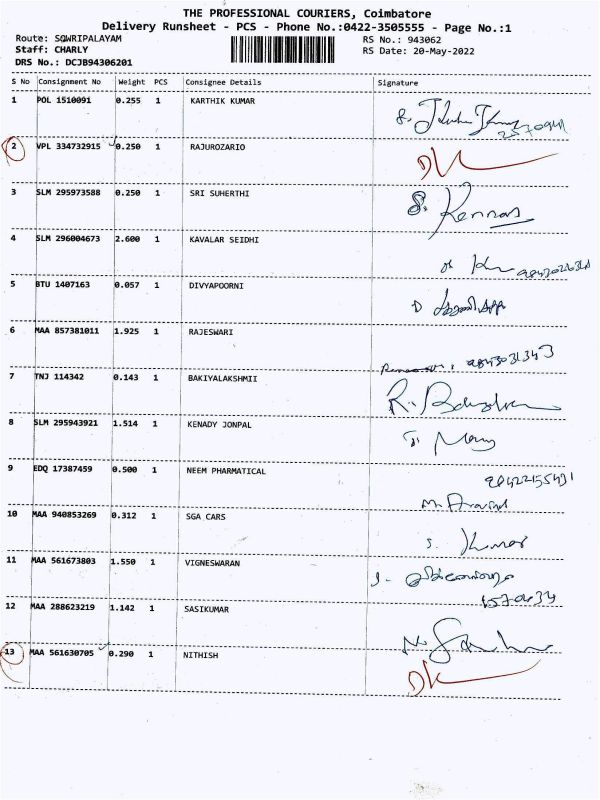 THE PROFESSIONAL COURIERS, Coimbatore
Delivery Runsheet - PCS - Phone No.:0422-3505555 - Page No.:1
Route: SOWRIPALAYAM RS No.: 943062
Staff: CHARLY RS Date: 20-May-2022
DRS No.: DCJB94306201
S No Consignment No Weight PCS Consignee Details Signature
1 POL 1510091 0.255 1 KARTHIK KUMAR
2 VPL 334732915 0.250 1 RAJUROZARIO
3 SLM 295973588 0.250 1 SRI SUHERTHI
4 SLM 296004673 2.600 1 KAVALAR SEIDHI
5 BTU 1407163 0.057 1 DIVYAPOORNI
6 MAA 857381011 1.925 1 RAJESWARI
9843031343
7 TNJ 114342 0.143 1 BAKIYALAKSHMII
8 SLM 295943921 1.514 1 KENADY JONPAL
9 EDQ 17387459 0.500 1 NEEM PHARMATICAL
M. Aravind
10 MAA 940853269 0.312 1 SGA CARS
S. Kumar
11 MAA 561673803 1.550 1 VIGNESWARAN
12 MAA 288623219 1.142 1 SASIKUMAR
13 MAA 561630705 0.290 1 NITHISH